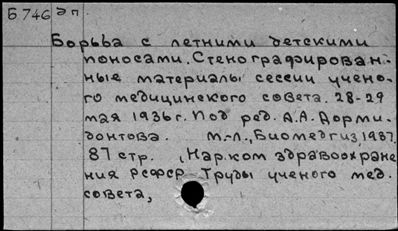 Б746 эп
Борьба с летними детскими
поносами. Стенографирован-
ные материалы сессии учено-
го медицинского совета. 28-29
мая 1936г. Под ред. А.А. Дорми-
донтова. М.-Л., Биомедгиз, 1937.
87 стр. , Нар.ком здравоохране
ния РСФСР Труды ученого мед.
совета,